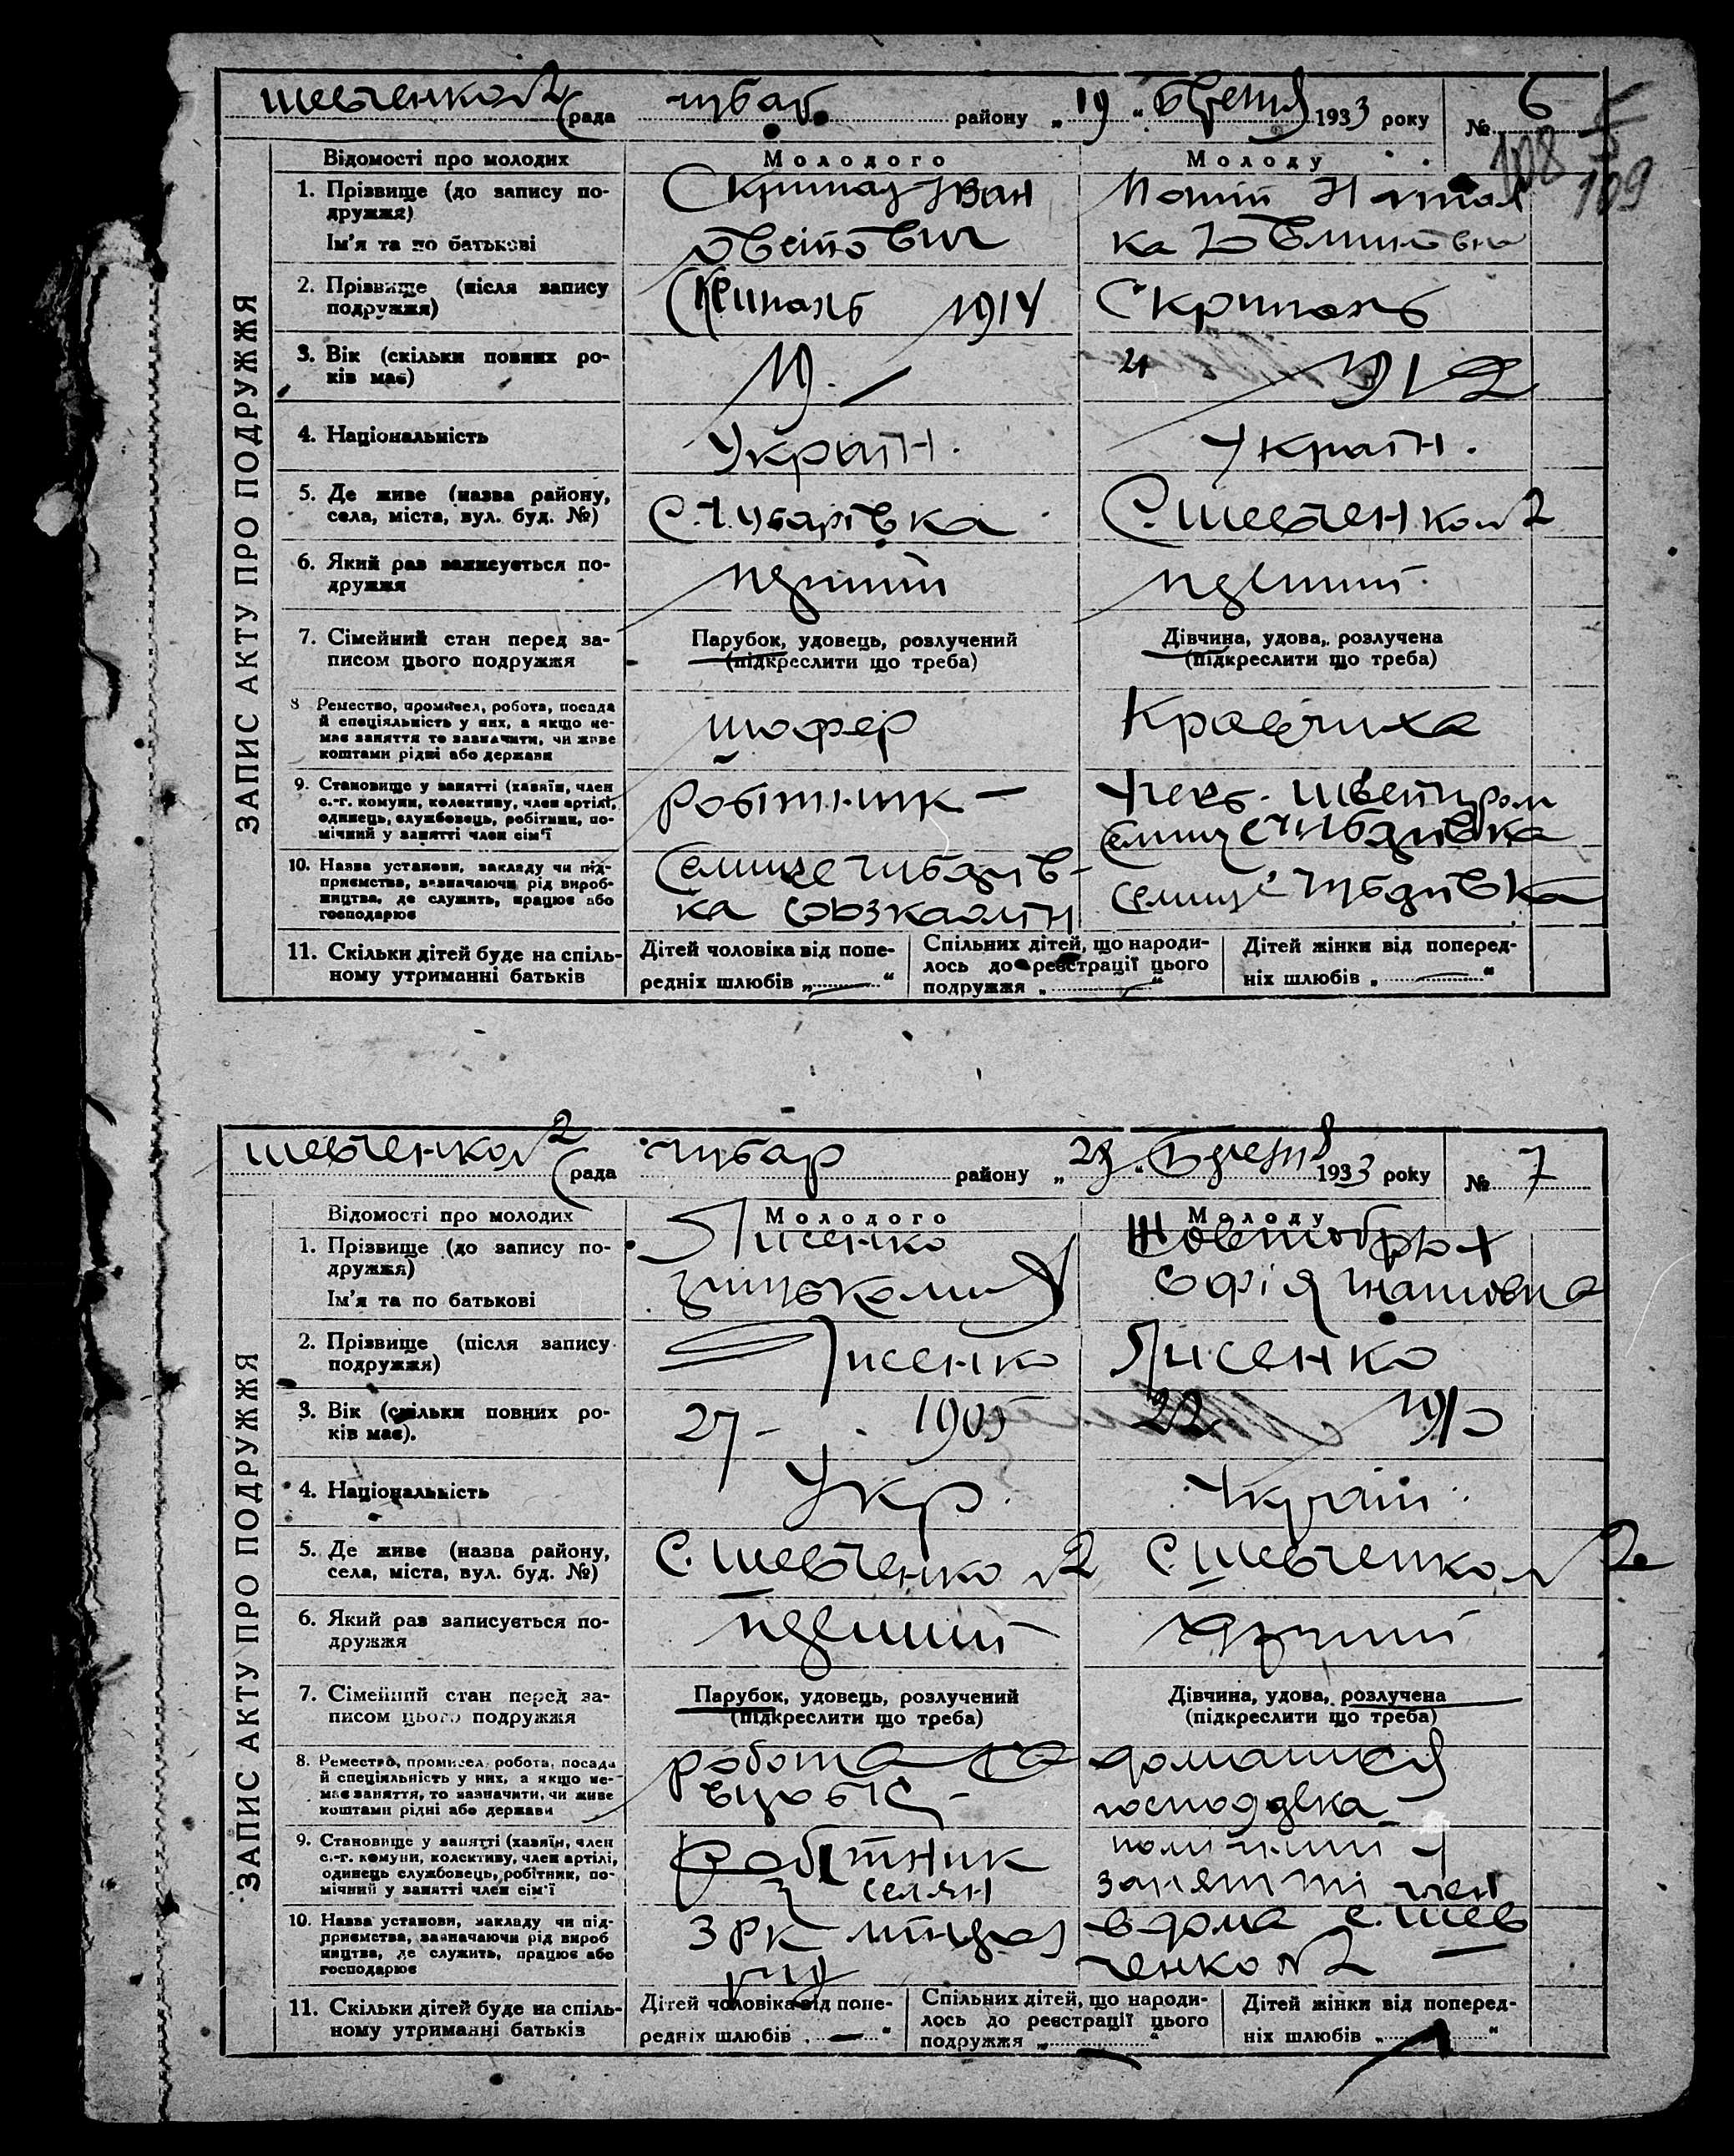 Шевченко №2 рада Чубар. району „19“ Березня 1933 року № 6
108
109
Відомості про молодих Молодого Молоду
1. Прізвище (до запису подружжя)
Ім'я та по батькові
Іван
ка
2. Прізвище (після запису подружжя)
1914
3. Вік (скільки повних років має)
19. 21 1912
4. Національність
Україн. Україн.
5. Де живе (назва району, села, міста, вул. буд. №)
С. Чубарівка С. Шевченко №2
6. Який раз записується подружжя
перший перший
7. Сімейний стан перед записом цього подружжя
Парубок, удовець, розлучений (підкреслити що треба)
Дівчина, удова, розлучена (підкреслити що треба)
8 Ремество, промисел, робота, посада й спеціяльність у них, а якщо немає заняття то зазначити, чи живе коштами рідні або держави
шофер Кравчиха
9. Становище у занятті (хазяїн, член с.-г. комуни, колективу, член артілі, одинець, службовець, робітник, помічний у занятті член сім'ї
робітник Швейпром
Чубарівка
10. Назва установи, закладу чи підприємства, зазначаючи рід виробництва, де служить, працює або господарює
Чубарівка
11. Скільки дітей буде на спільному утриманні батьків
Дітей чоловіка від попередніх шлюбів „ “
Спільних дітей, що народилось до реєстрації цього подружжя „ “
Дітей жінки від попередніх шлюбів „ “
ЗАПИС АКТУ ПРО ПОДРУЖЖЯ
Шевченко №2 рада Чубар району „ “ Березня 1933 року № 7
Відомості про молодих Молодого Молоду
1. Прізвище (до запису подружжя)
Ім'я та по батькові
Лисенко
Софія
2. Прізвище (після запису подружжя)
Лисенко Лисенко
3. Вік (скільки повних років має).
27 1905 22
4. Національність
Укр. Україн.
5. Де живе (назва району, села, міста, вул. буд. №)
С. Шевченко №2 С. Шевченко №2
6. Який раз записується подружжя
перший
7. Сімейний стан перед записом цього подружжя
Парубок, удовець, розлучений (підкреслити що треба)
Дівчина, удова, розлучена (підкреслити що треба)
8. Ремество, промисел, робота, посада й спеціяльність у них, а якщо немає заняття, то зазначити, чи живе коштами рідні або держави
робота домашня
9. Становище у занятті (хазяїн, член с.-г. комуни, колективу, член артілі, одинець службовець, робітник, помічний у занятті член сім'ї
робітник
селян занятті член
10. Назва установи, закладу чи підприємства, зазначаючи рід виробництва, де служить, працює або господарює
ЗРК вдома с. Шев
ченко №2
11. Скільки дітей буде на спільному утриманні батьків
Дітей чоловіка від попередніх шлюбів „ “
Спільних дітей, що народилось до реєстрації цього подружжя „ “
Дітей жінки від попередніх шлюбів „ 1 “
ЗАПИС АКТУ ПРО ПОДРУЖЖЯ